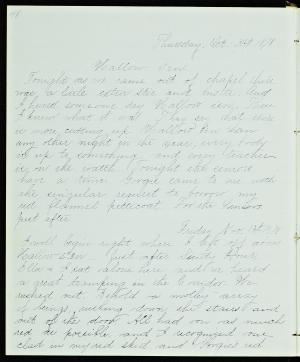 Thursday, Oct. 31st 1878
Hallow Een!
Tonight as we came out of chapel there
was a little extra stir and bustle. And
I heard someone say Hallow een, Then
I knew what it was. They say that there
is more cutting up Hallow Een than
any other night in the year, every body
is up to something and every teacher
is on the watch. Tonight
have a time. came to me with
the singular request to borrow my
red flannel petticoat. For the
just after
Friday Nov. 1st 78
I will begin right where I left off at
Hallow een. Just after Study Hour
Ella & I sat alone here and we heard
a great tramping in the Corridor. We
rushed out. Behold a motley array
of beings rushing down the stairs and
out of the door. All had on as much
red as possible and I recognized one
clad in my red skirt and